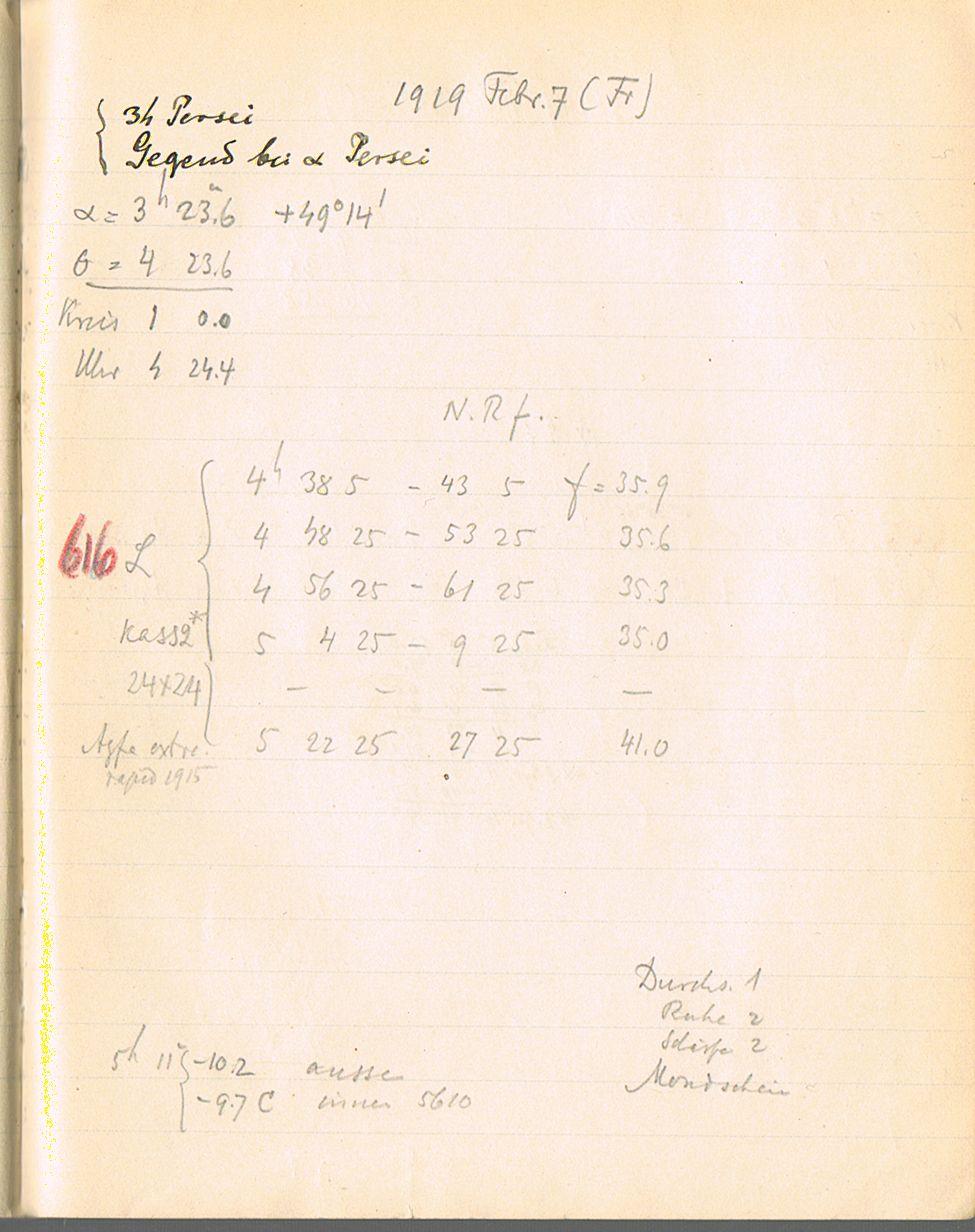 1919 Febr. 7 (Fr)
34 Persei
Gegend bei α Persei
α = 3ʰ 23ᵐ.6 +49°14'
θ = 4 23.6
Kreis 1 0.0
Uhr 4 24.4
N.R f.
4ʰ 38 5 - 43 5 f = 35.9
4 48 25 - 53 25 35.6
616 L
4 56 25 - 61 25 35.3
Kass2*
5 4 25 - 9 25 35.0
24x24 — — — —
Agfa extra. 5 22 25 27 25 41.0
rapid 1915
Durchs. 1
Ruhe 2
Schärfe 2
Mondschein
5ʰ 11ᵐ -10.2 aussen
-9.7 C innen 5610